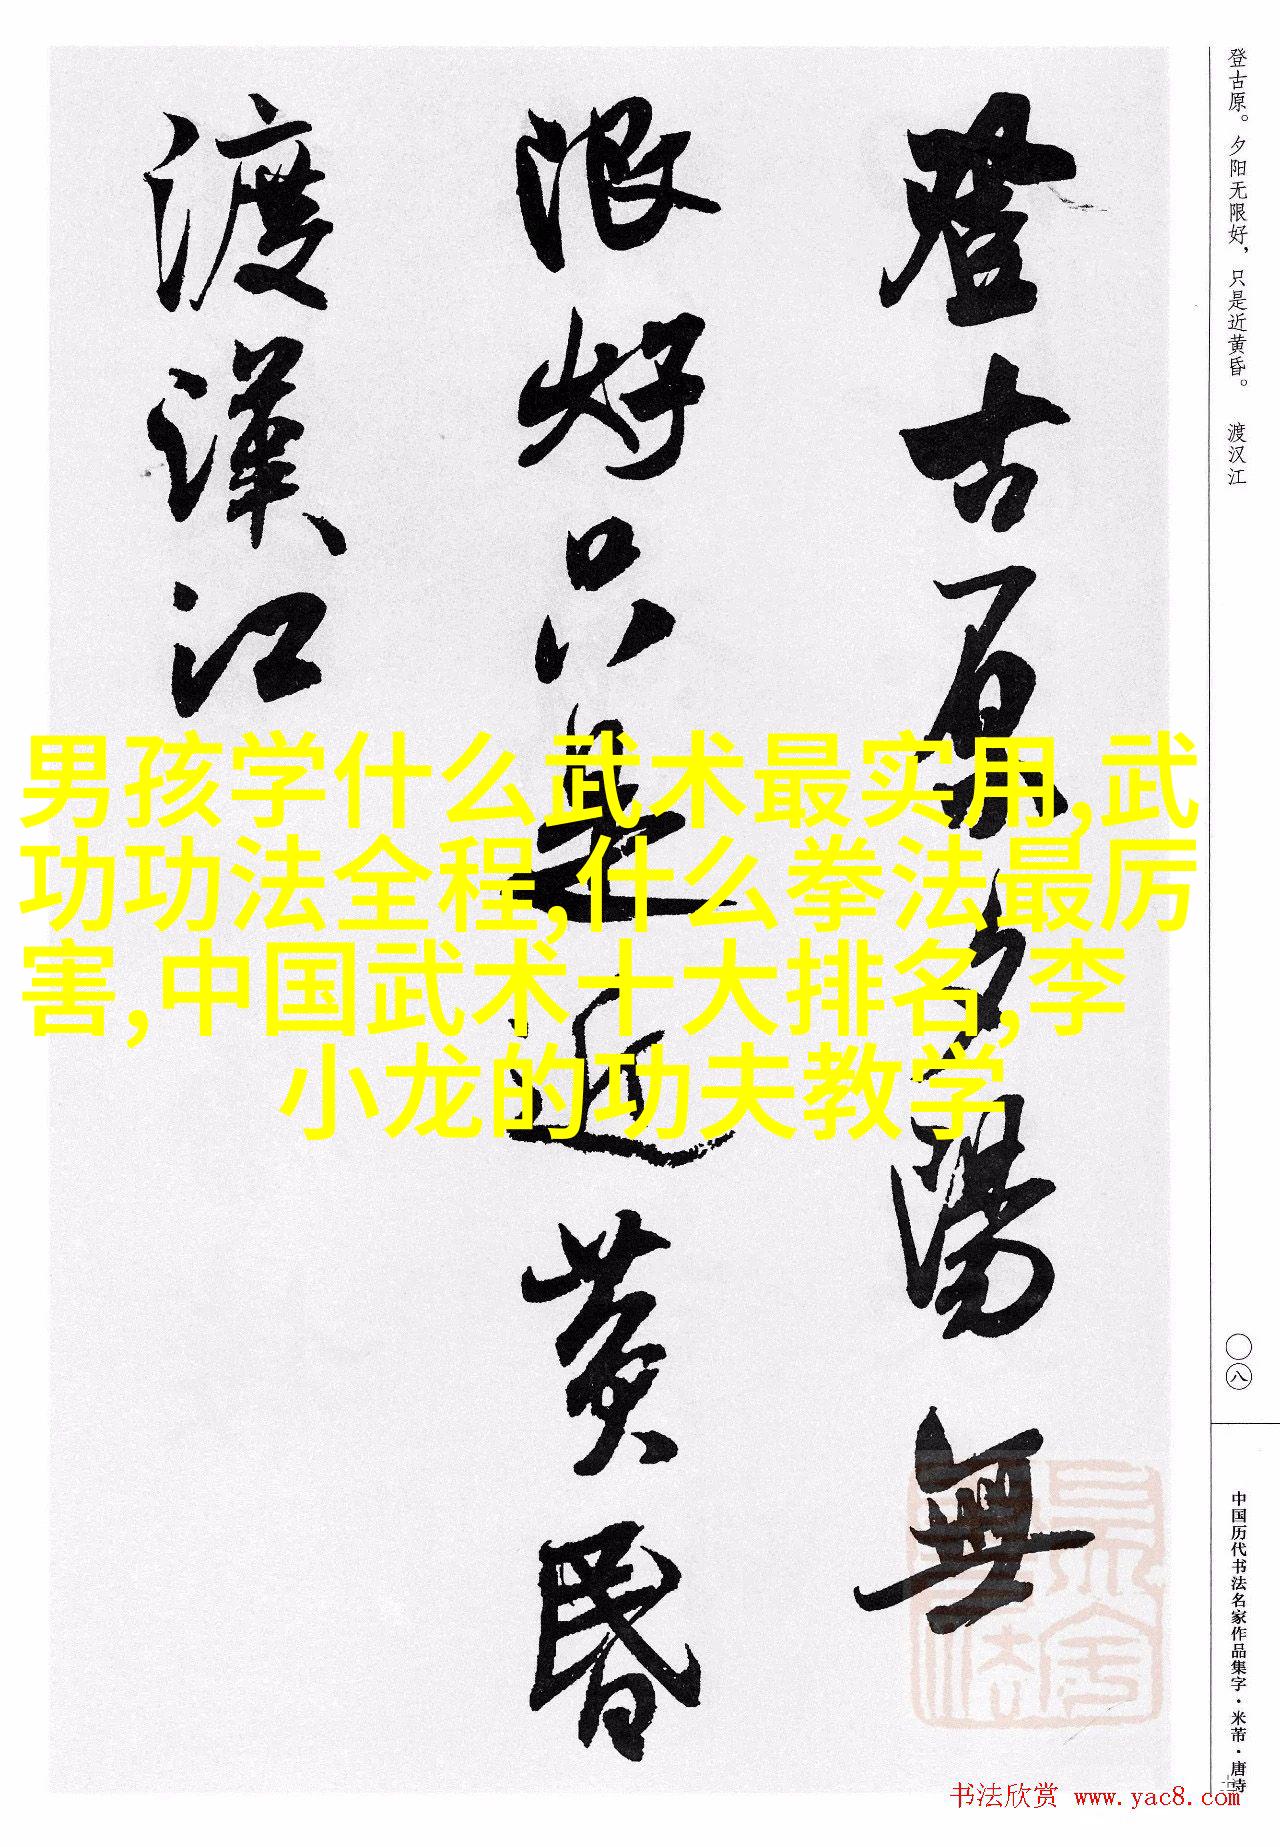 登古原夕陽無
限好只是近黄昏
渡漢江
登古原。夕阳无限好，只是近黄昏。 渡汉江
〇八
中国历代书法名家作品集字·米芾·唐诗
男孩学什么武术最实用,武
功功法全程,什么拳法最厉
害,中国武术十大排名,李
小龙的功夫教学
书法欣赏 www.yac8.com